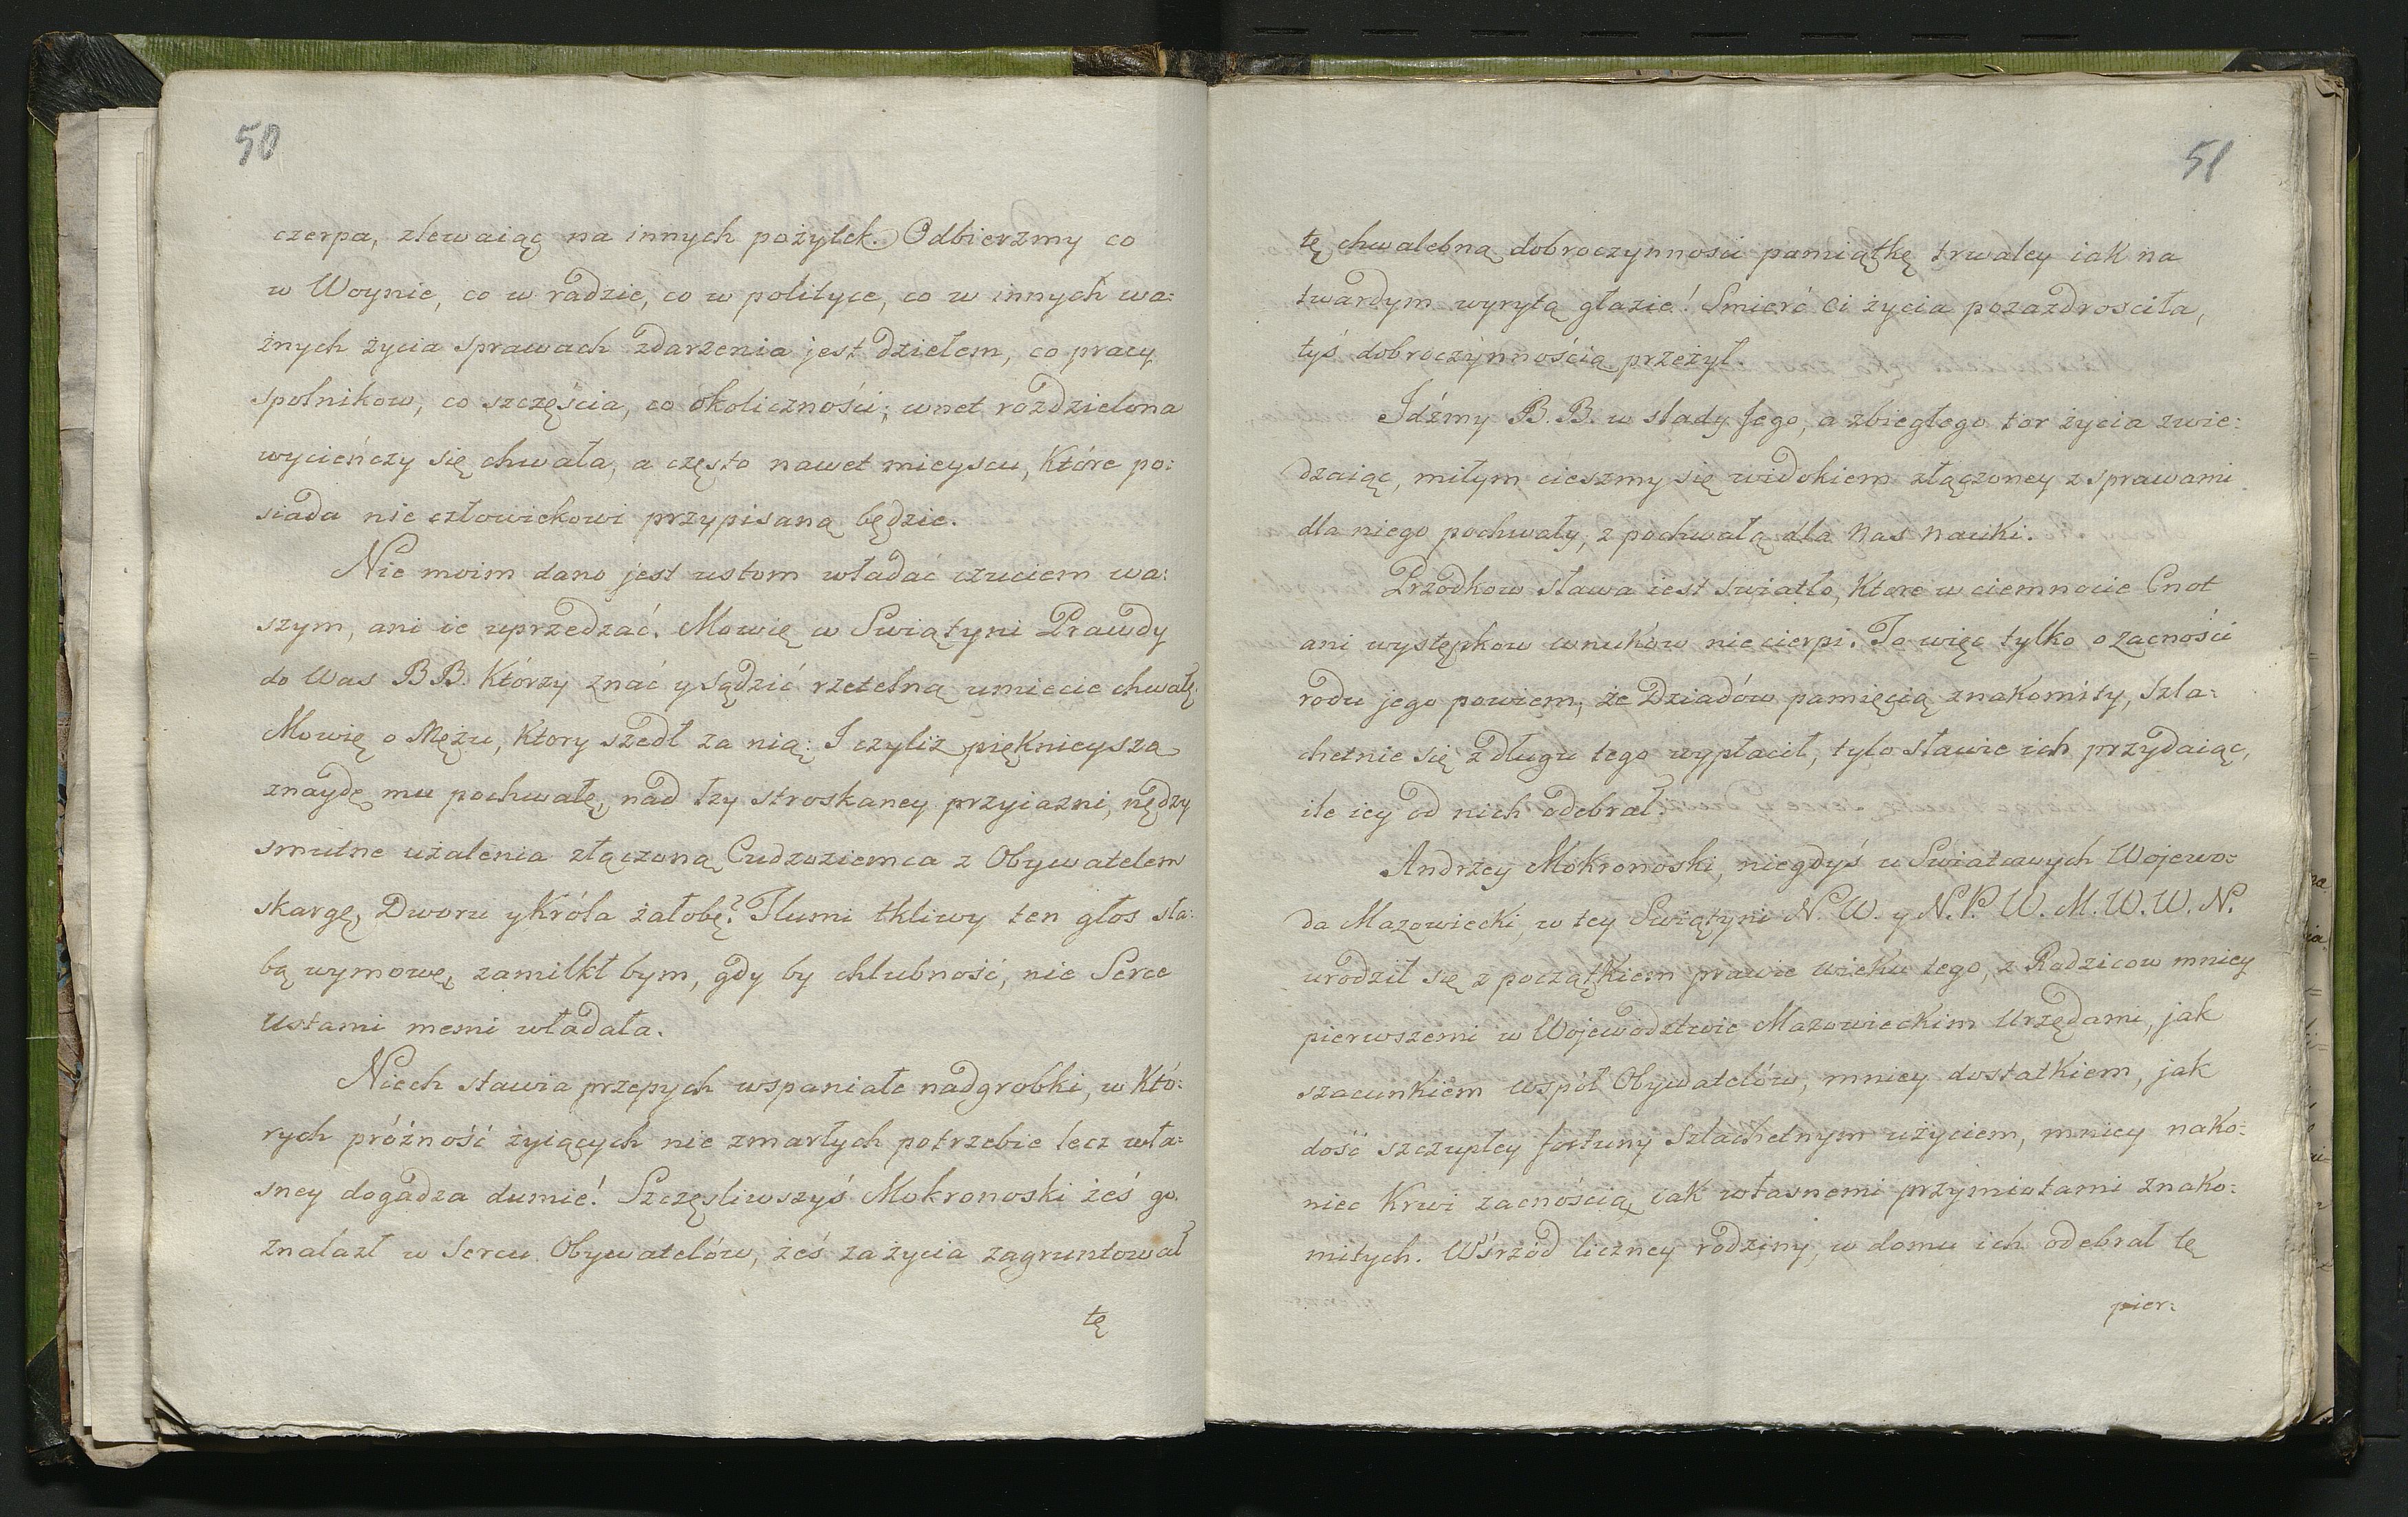 50
czerpa, zlewaiąc na innych pożytek. Odbierzmy co
w Woynie, co w radzie, co w polityce, co w innych wa:
żnych życia sprawach zdarzenia jest dziełem, co pracy
spolnikow, co szczęścia, co okoliczności; wnet rozdzielona
wycieńczy się chwała, a często nawet mieyscu, które po:
siada nie człowiekowi przypisaną będzie.
Nie moim dano jest ustom władać czuciem wa:
szym, ani ie uprzedzać. Mowię w Swiątyni Prawdy
do Was B B. Którzy znać y sądzić rzetelną umiecie chwałę.
Mowię o Mężu, Ktory szedł za nią: I czyliż pięknieyszą
znaydę mu pochwałę, nad łzy stroskaney przyiazni, nędzy
smutne użalenia złączoną Cudzoziemca z Obywatelem
skargę, Dworu y Króla żałobę? Tłumi tkliwy ten głos sła:
bą wymowę, zamilkł bym, gdy by chlubność, nie Serce
Ustami memi władała.
Niech stawia przepych wspaniałe nadgrobki, w Któ:
rych próżność żyiących nie zmarłych potrzebie lecz wła:
sney dogadza dumie! Szczęsliwszyś Mokronoski żeś go.
znalazł w Sercu Obywatelów, żeś za życia zagruntował
tę
51
tę chwalebną dobroczynnosci pamiątkę trwaley iak na
twardym wyrytą głazie! Smierć Ci życia pozazdrosciła,
tyś dobroczynnością przeżył.
Idźmy B. B. w slady Jego, a zbiegłego tor życia zwie:
dzaiąc, miłym cieszmy się widokiem złączoney z sprawami
dla niego pochwały, z pochwałą dla Nas Nauki.
Przodkow sława iest swiatło, Ktore w ciemnocie Cnot
ani występkow wnuków nie cierpi. To więc tylko o zacności
rodu jego powiem, że Dziadów pamięcią znakomity, szla:
chetnie się z długu tego wypłacił, tylo sławie ich przydaiąc,
ile iey od nich odebrał.
Andrzey Mokronoski, niegdyś u Swiatowych Wojewo:
da Mazowiecki, w tey Swiątyni N. W. y N. P. W. M. W. W. N.
urodził się z początkiem prawie wieku tego, z Rodzicow mniey
pierwszemi w Wojewodztwie Mazowieckim Urzędami, jak
szacunkiem współ Obywatelów, mniey dostatkiem, jak
dość szczupłey fortuny szlachetnym użyciem, mniey nako:
niec Krwi zacnością, iak własnemi przymiotami znako:
mitych. Wśrzód liczney rodziny, w domu ich odebrał tę
pier: